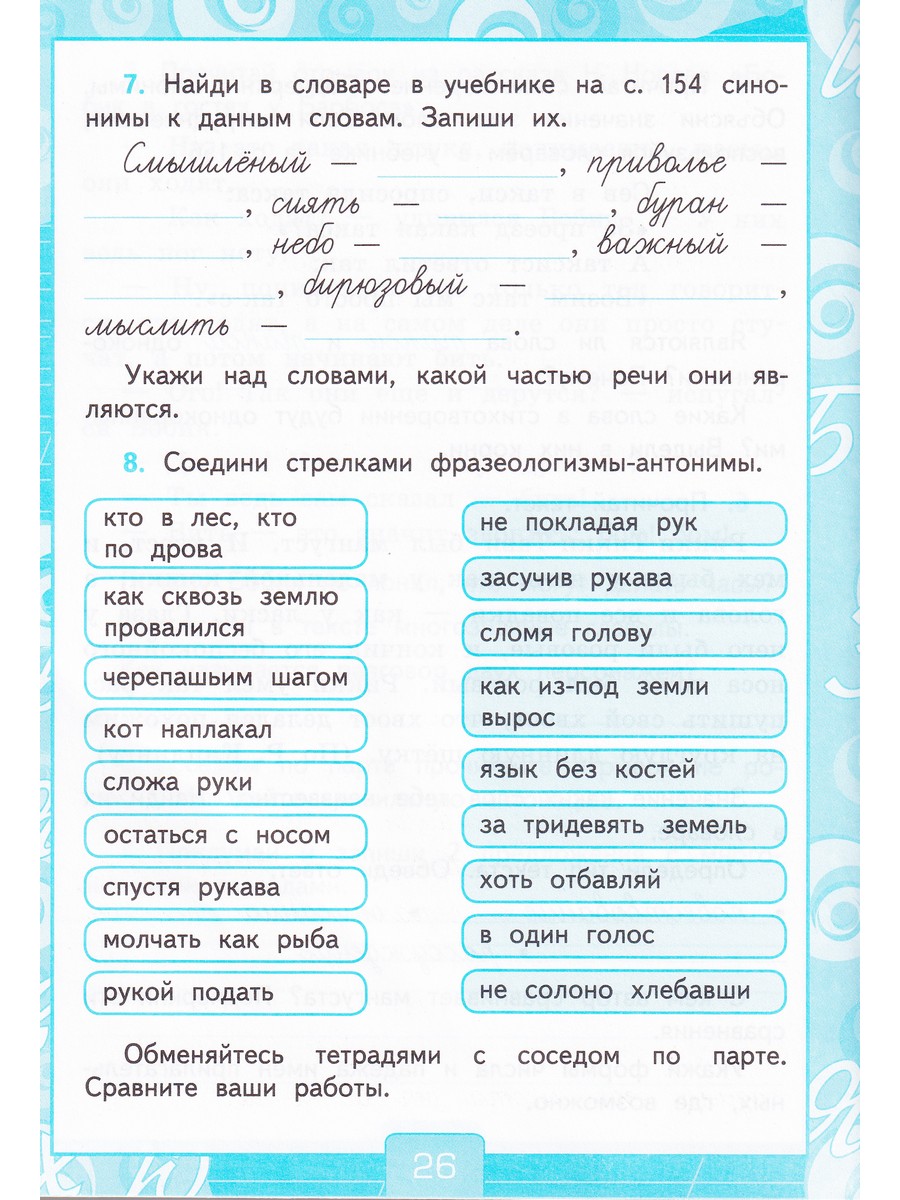 7. Найди в словаре в учебнике на с. 154 сино-
нимы к данным словам. Запиши их.
Смышлёный — , приволье —
, сиять — , буран —
, небо — , важный —
, бирюзовый — ,
мыслить — .
Укажи над словами, какой частью речи они яв-
ляются.
8. Соедини стрелками фразеологизмы-антонимы.
кто в лес, кто
по дрова
как сквозь землю
провалился
черепашьим шагом
кот наплакал
сложа руки
остаться с носом
спустя рукава
молчать как рыба
рукой подать
не покладая рук
засучив рукава
сломя голову
как из-под земли
вырос
язык без костей
за тридевять земель
хоть отбавляй
в один голос
не солоно хлебавши
Обменяйтесь тетрадями с соседом по парте.
Сравните ваши работы.
26